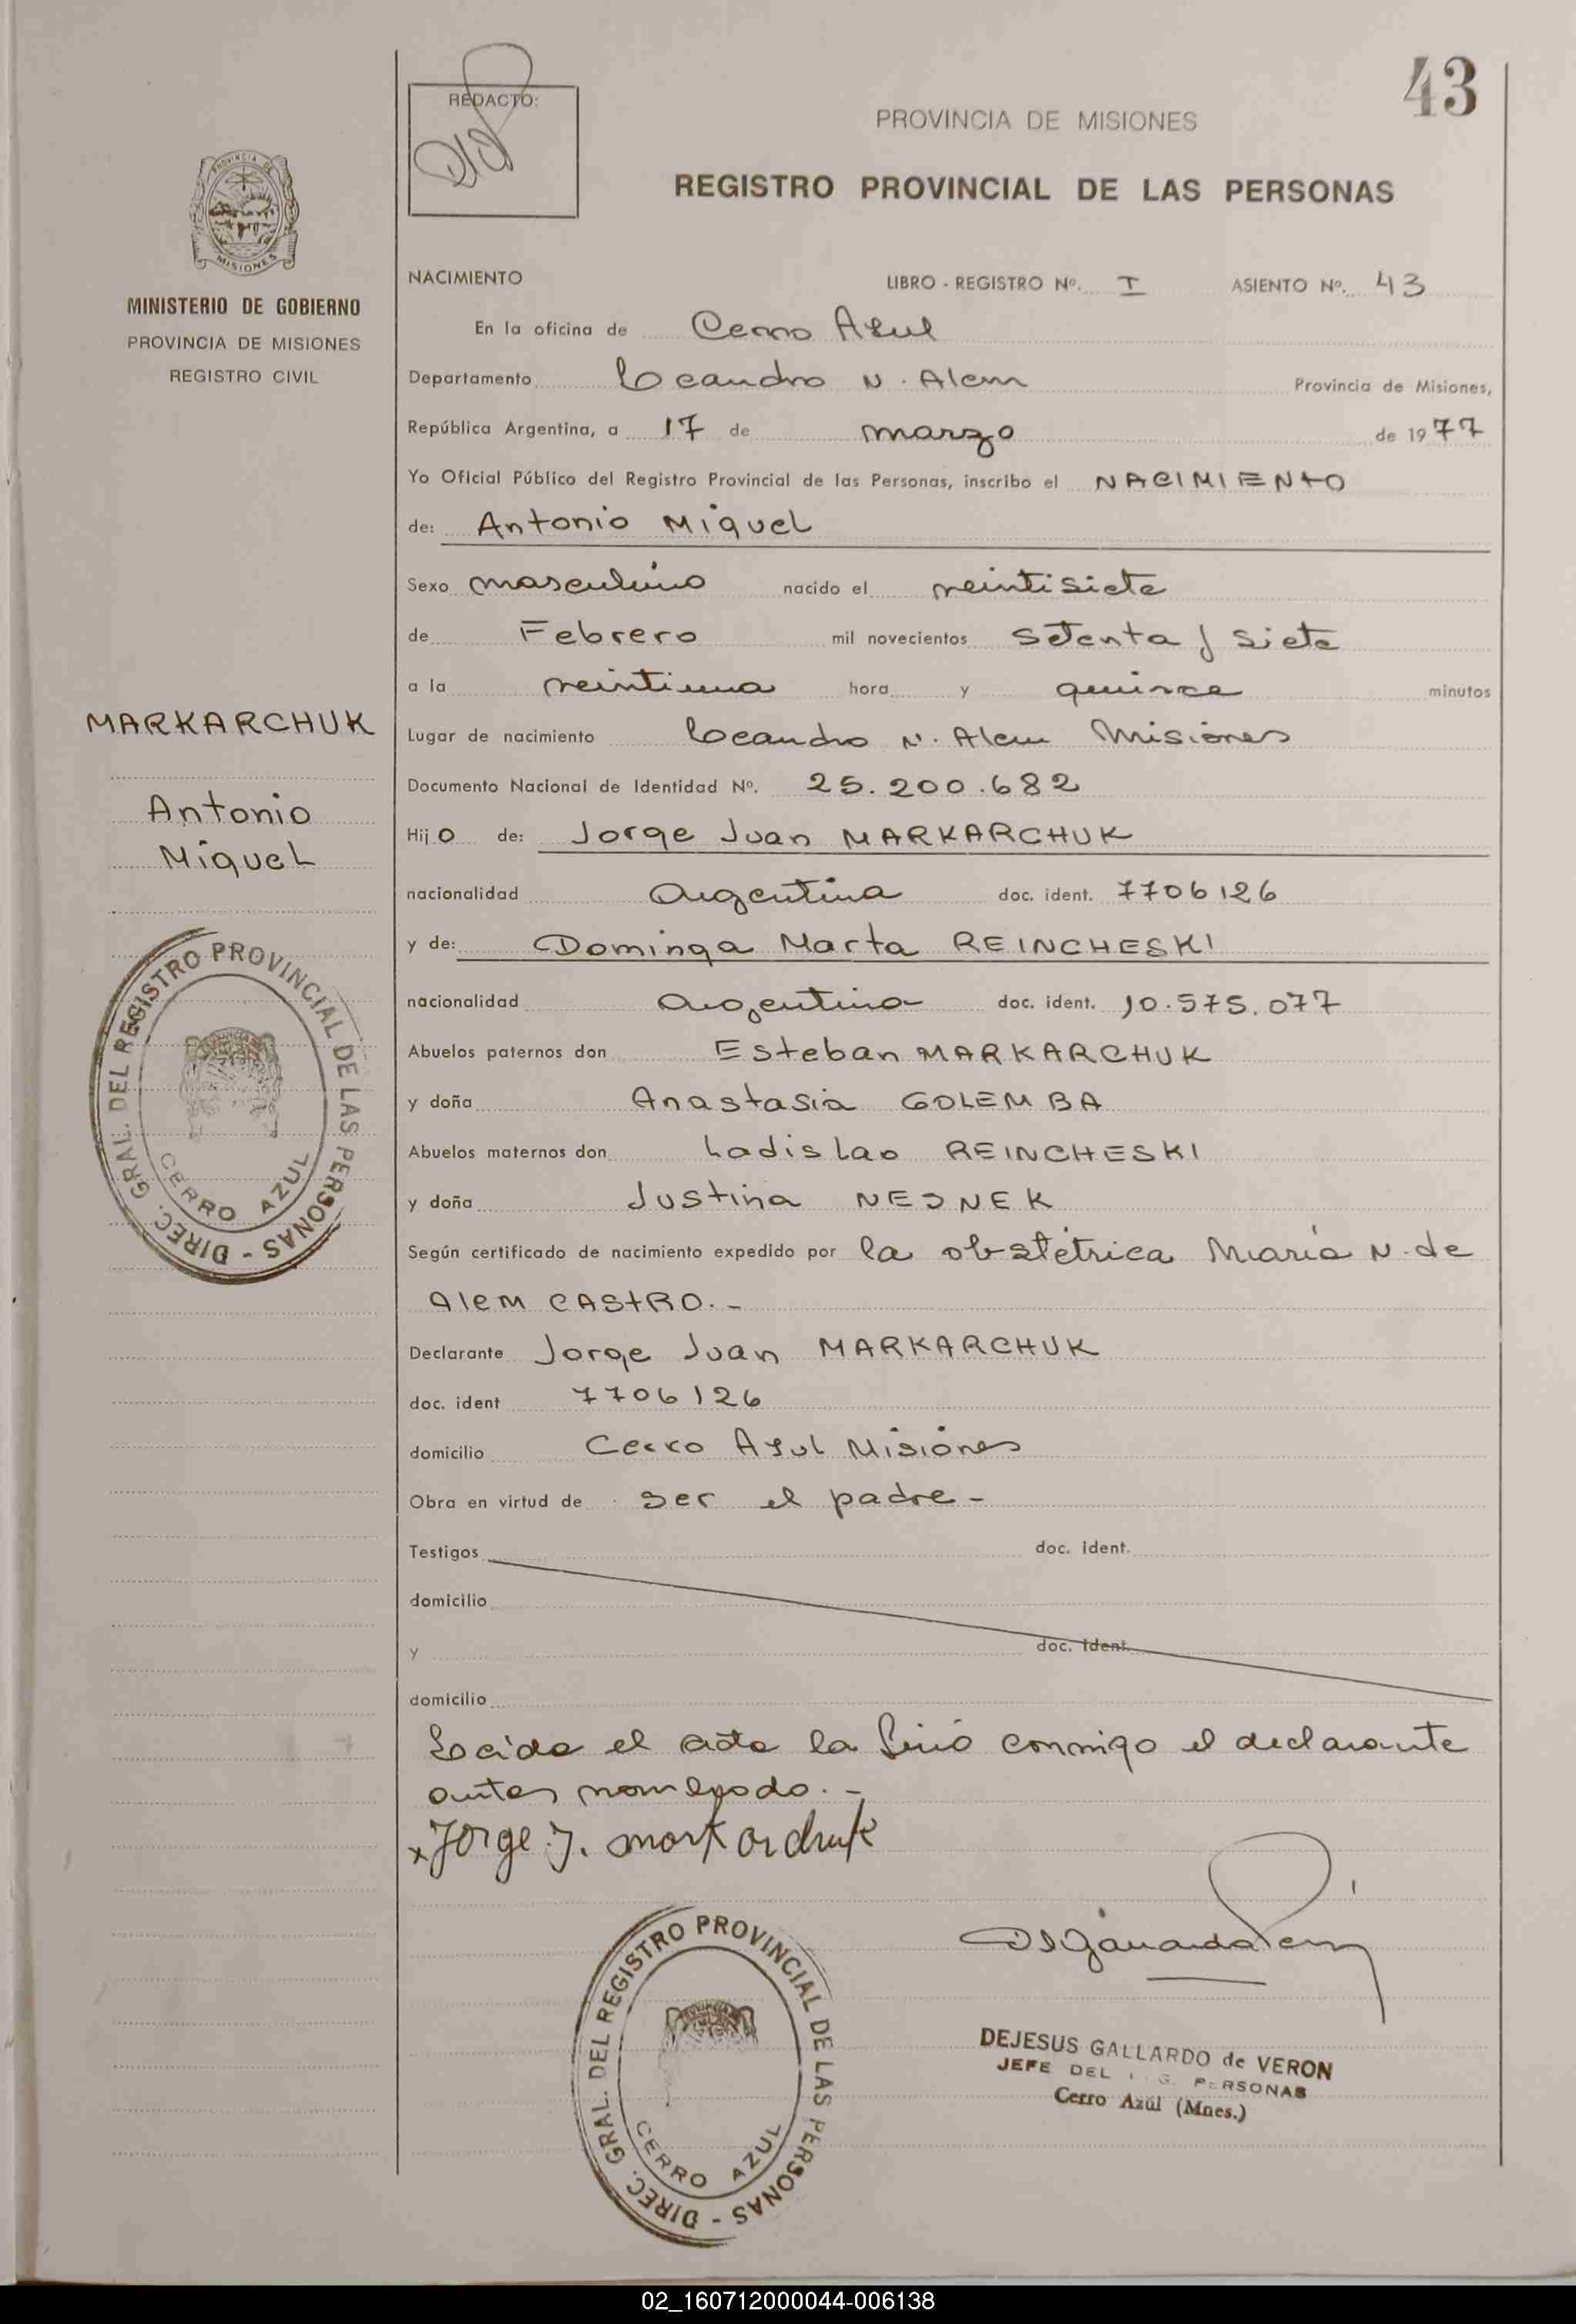 43
REDACTO:
PROVINCIA DE MISIONES
REGISTRO PROVINCIAL DE LAS PERSONAS
PROVINCIA DE
MISIONES
MINISTERIO DE GOBIERNO
PROVINCIA DE MISIONES
REGISTRO CIVIL
NACIMIENTO LIBRO - REGISTRO Nº. I ASIENTO Nº. 43
En la oficina de Cerro Azul
Departamento Leandro N. Alem Provincia de Misiones,
República Argentina, a 17 de marzo de 1977
Yo Oficial Público del Registro Provincial de las Personas, inscribo el NACIMIENTO
de: Antonio Miguel
Sexo masculino nacido el veintisiete
de Febrero mil novecientos setenta y siete
a la veintiuna hora y quince minutos
MARKARCHUK
Antonio
Miguel
Lugar de nacimiento Leandro N. Alem Misiones
Documento Nacional de Identidad Nº. 25.200.682
Hijo de: Jorge Juan MARKARCHUK
nacionalidad argentina doc. ident. 7706126
y de: Dominga Marta REINCHESKI
nacionalidad argentina doc. ident. 10.575.077
Abuelos paternos don Esteban MARKARCHUK
y doña Anastasia GOLEMBA
Abuelos maternos don Ladislao REINCHESKI
y doña Justina NESNEK
DIREC. GRAL. DEL REGISTRO PROVINCIAL DE LAS PERSONAS -
CERRO AZUL
Según certificado de nacimiento expedido por la obstétrica María N. de
Alem CASTRO.-
Declarante Jorge Juan MARKARCHUK
doc. ident 7706126
domicilio Cerro Azul Misiones
Obra en virtud de ser el padre -
Testigos doc. ident.
domicilio
y doc. ident.
domicilio
Leida el acta la firmó conmigo el declarante
antes nombrado.-
x Jorge J. markarchuk
DIREC. GRAL. DEL REGISTRO PROVINCIAL DE LAS PERSONAS -
CERRO AZUL
DEJESUS GALLARDO de VERON
JEFE DEL G. PERSONAS
Cerro Azúl (Mnes.)
02_160712000044-006138